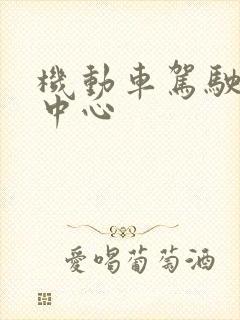 機動車駕駛
中心
愛喝葡萄酒